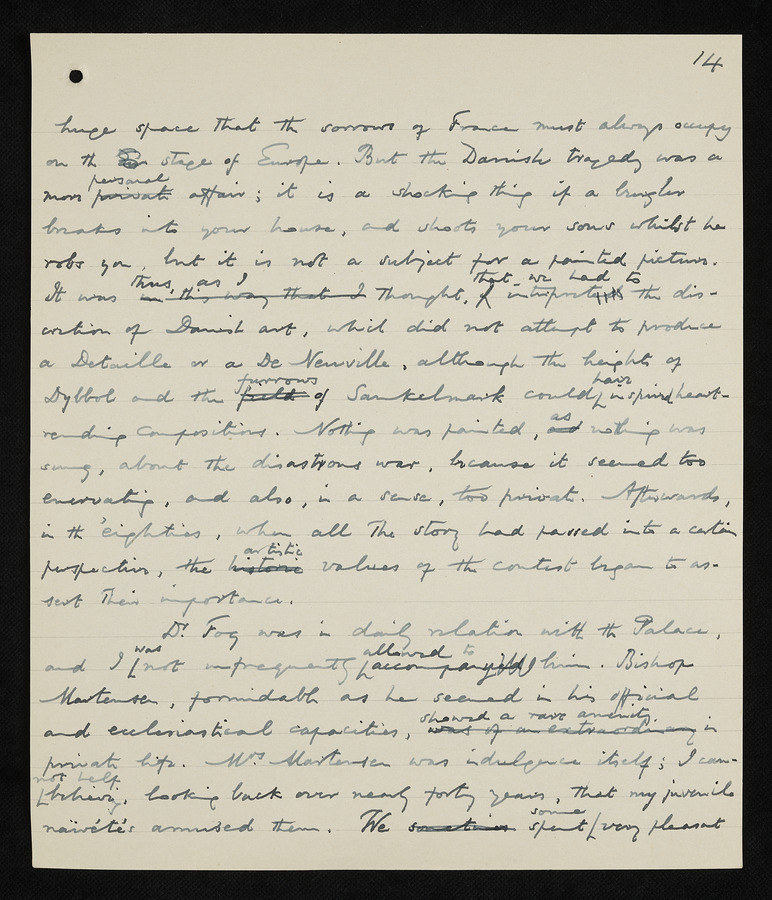 14
huge space that the sorrows of France must always occupy
on the stage of Europe. But the Danish tragedy was a
personal
more private affair; it is a shocking thing if a burglar
breaks into your house, and shoots your sons whilst he
robs you, but it is not a subject for a painted picture.
thus, as I that we had to
It was in this way that I thought, interpret the dis-
cretion of Danish art, which did not attempt to produce
a Detaille or a De Neuville, although the heights of
furrows have
Dybböl and the field of Sankelmark could inspired heart-
as
rending compositions. Nothing was painted, and nothing was
sung, about the disastrous war, because it seemed too
enervating, and also, in a sense, too private. Afterwards,
in the 'eighties, when all the story had passed into a certain
artistic
perspective, the historic values of the contest began to as-
sert their importance.
Dr. Fog was in daily relation with the Palace,
was allowed to
and I not infrequently accompany him. Bishop
Martensen, formidable as he seemed in his official
showed a rare amenity
and ecclesiastical capacities, was of an extraordinary in
private life. Mrs. Martensen was indulgence itself; I can-
not help
believing, looking back over nearly forty years, that my juvenile
naïvétés amused them. We sometimes spent
some
very pleasant